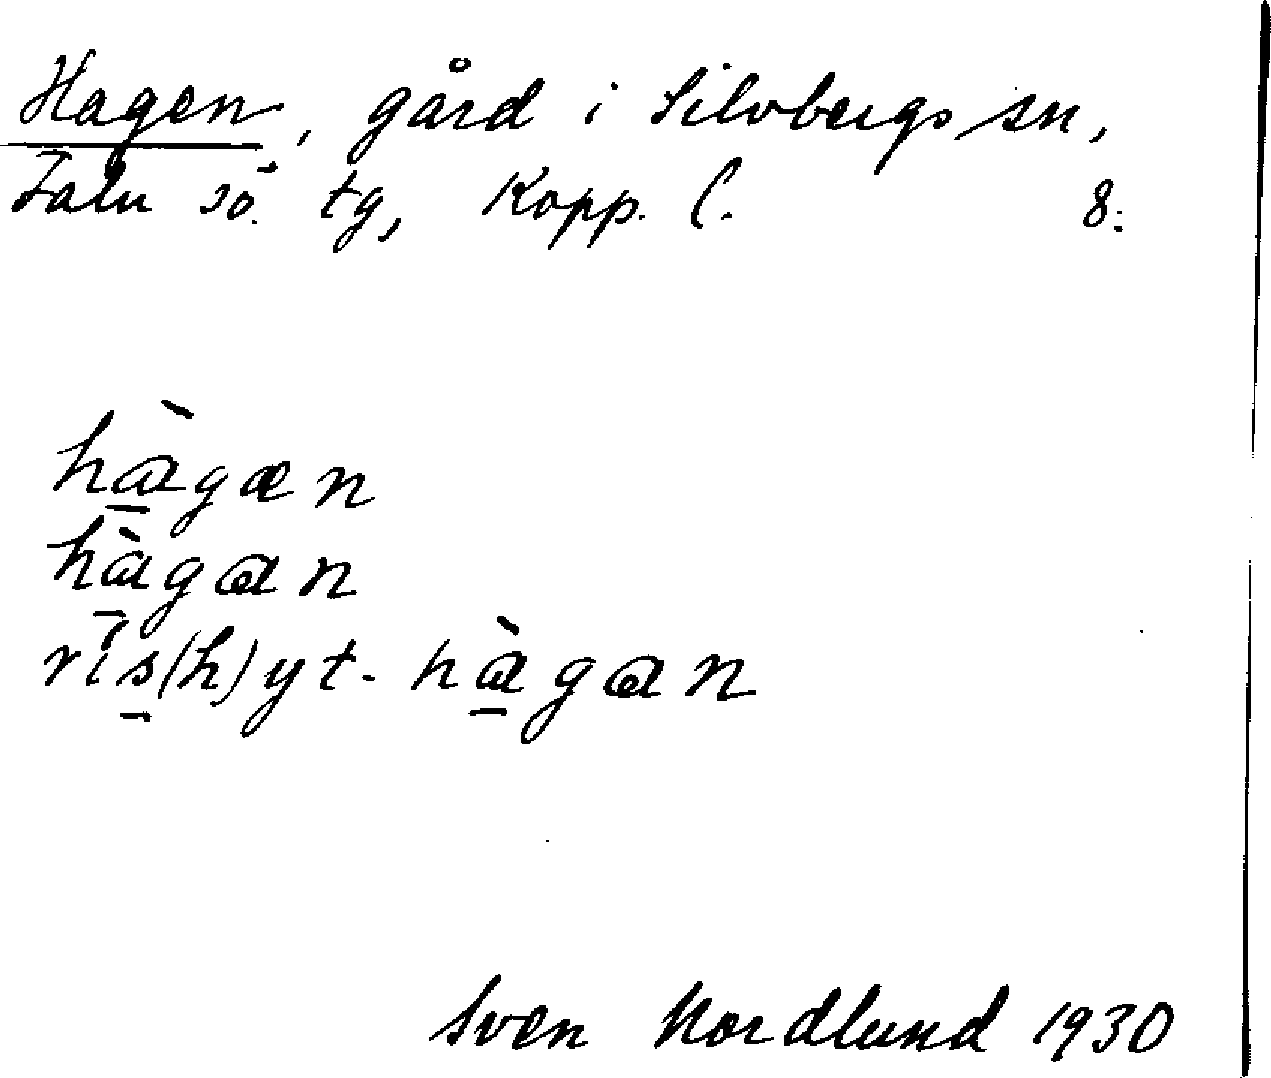 Hagen, gård i Silvbergs sn,
Falu sö. tg, Kopp. l. 8.
hàgæn
hàgan
rís(h)yt-hàgan
Sven Nordlund 1930